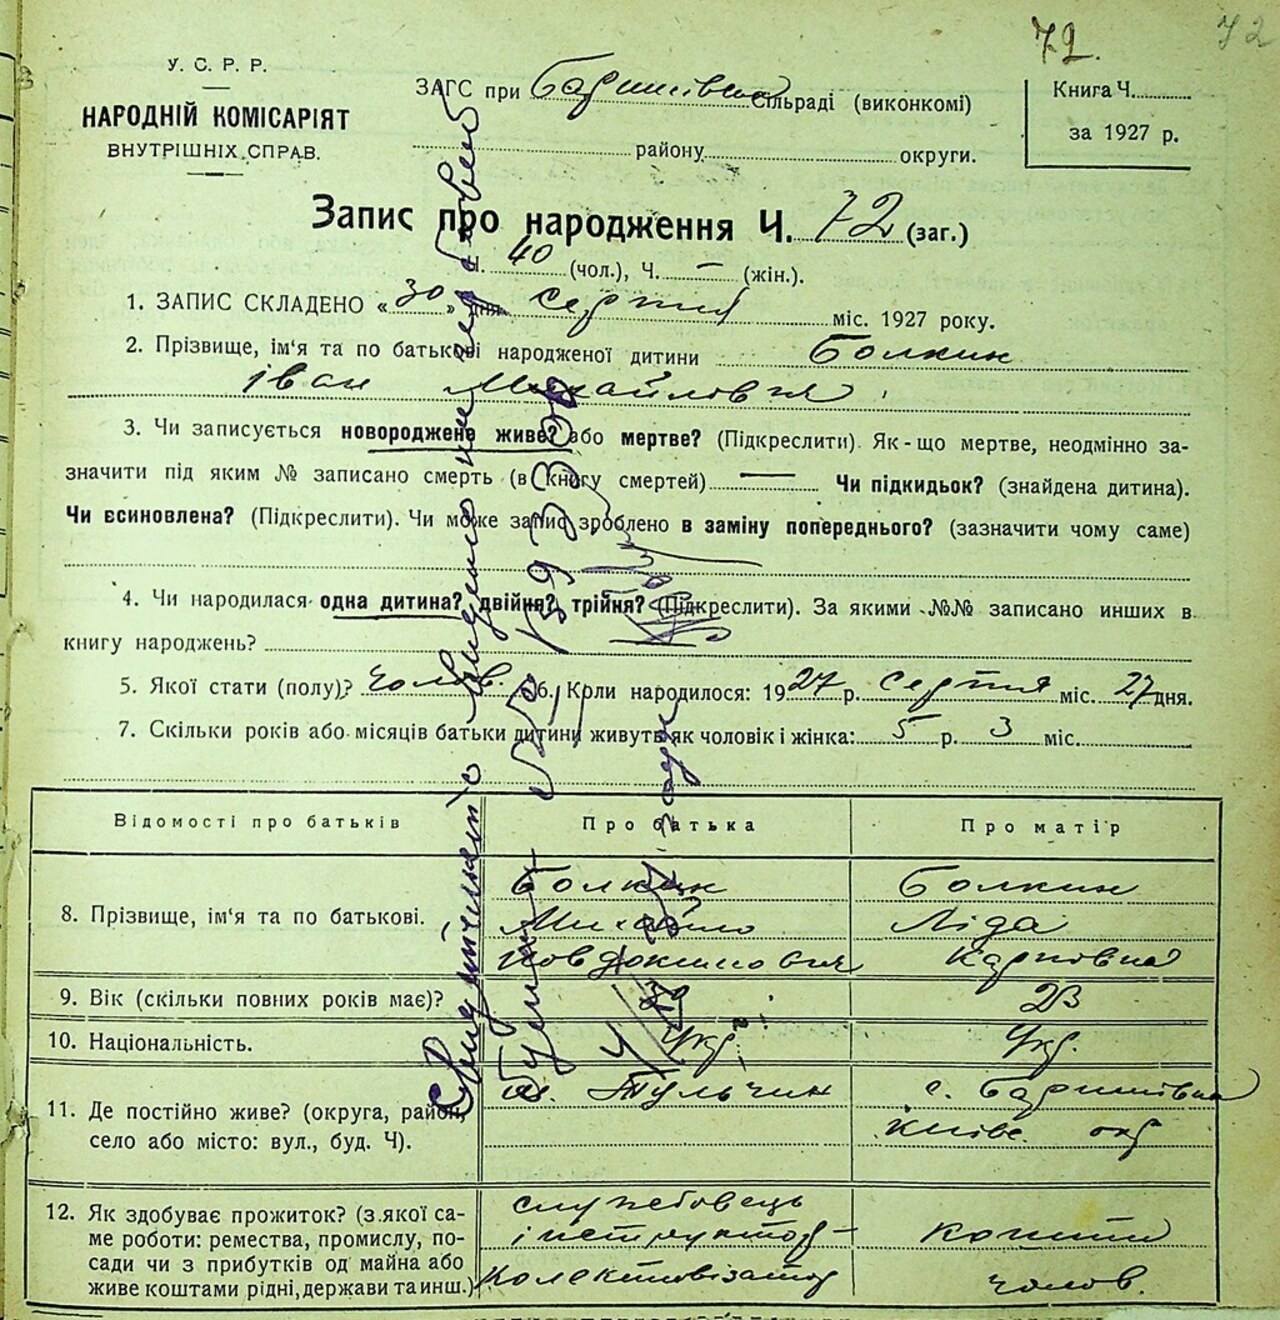 72.
72
У. С. Р. Р.
НАРОДНІЙ КОМІСАРІЯТ
ВНУТРІШНІХ СПРАВ.
ЗАГС при Баришівка Сільраді (виконкомі)
району округи.
Книга Ч.
за 1927 р.
Запис про народження Ч. 72 (заг.)
Ч. 40 (чол.), Ч. — (жін.).
1. ЗАПИС СКЛАДЕНО «30» дня серпня міс. 1927 року.
2. Прізвище, ім'я та по батькові народженої дитини Болкин
Іван Михайлович
3. Чи записується новороджене живе? або мертве? (Підкреслити). Як-що мертве, неодмінно за-
значити під яким № записано смерть (в книгу смертей) — Чи підкидьок? (знайдена дитина).
Чи всиновлена? (Підкреслити). Чи може запис зроблено в заміну попереднього? (зазначити чому саме)
4. Чи народилася одна дитина? двійня? трійня? (Підкреслити). За якими №№ записано инших в
книгу народжень?
5. Якої стати (полу)? чолов. 6. Коли народилося: 1927 р. серпня міс. 27 дня.
7. Скільки років або місяців батьки дитини живуть як чоловік і жінка: 5 р. 3 міс.
Відомості про батьків Про батька Про матір
8. Прізвище, ім'я та по батькові.
Болкин Болкин
Михайло Ліда
Карповна
9. Вік (скільки повних років має)? 23
10. Національність. Укр. Укр.
11. Де постійно живе? (округа, район, село або місто: вул., буд. Ч).
м. Тульчин с. Баришівка
Київс. окр
12. Як здобуває прожиток? (з якої са-
ме роботи: ремества, промислу, по-
сади чи з прибутків од майна або
живе коштами рідні, держави та инш.)
службовець
інструктор- кошти
колективізатор чолов.